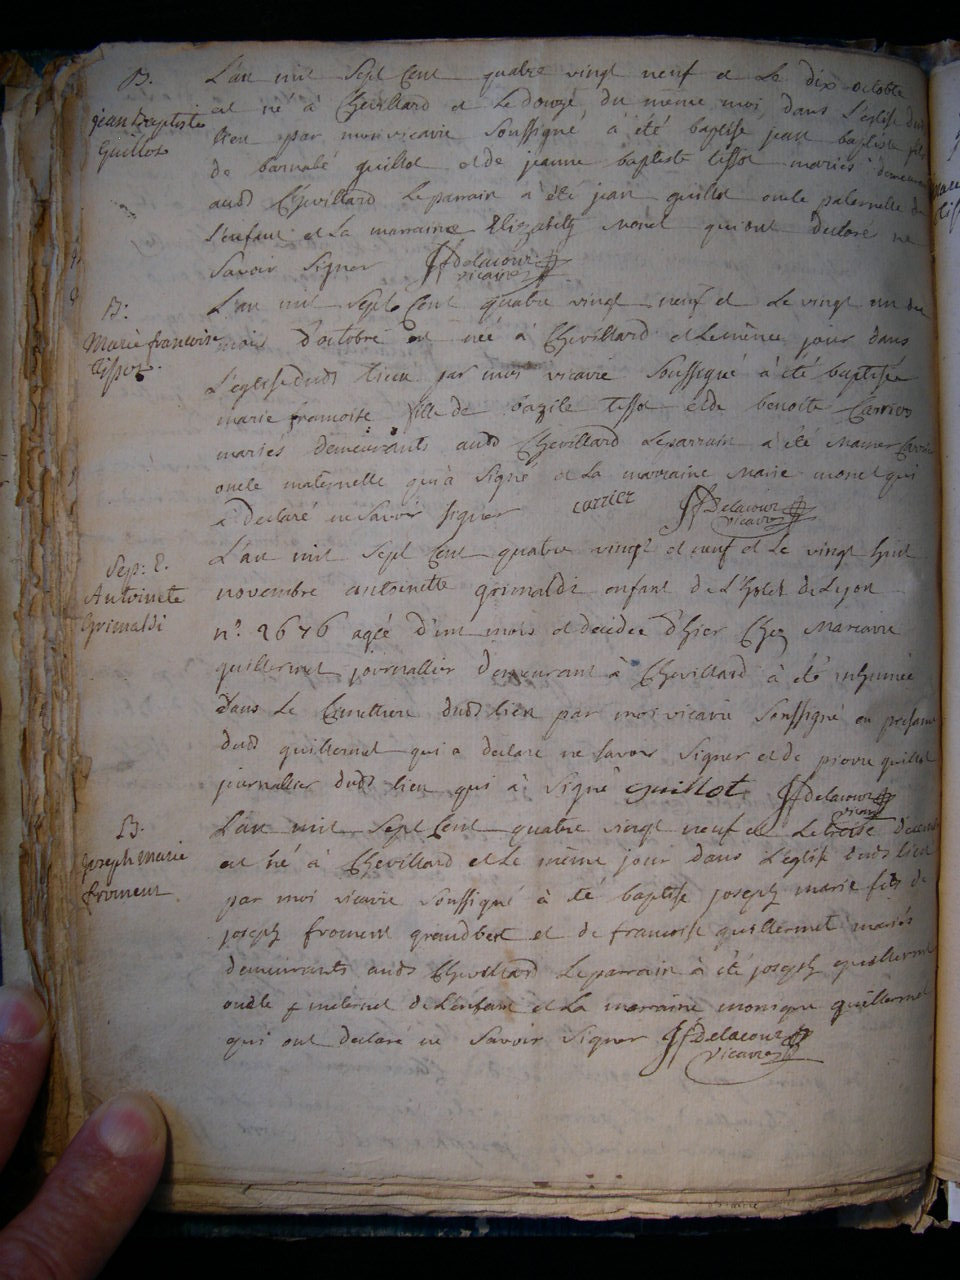 B.
jean baptiste
Guillot
L'an mil Sept Cent quatre vingt neuf et Le dix octobre
est né à Chevillard et Le douze du même mois dans L'eglise dud
lieu par moi vicaire Soussigné à été baptise jean baptiste fils
de barnabé guillot et de jeanne baptiste tissot mariés demeurants
audt Chevillard Le parrain à été jean guillot oncle paternelle de
L'enfant et La marraine Elizabeth monet qui ont declare ne
Savoir Signer JfDelacour
vicaire
B:
Marie francoise
Tissot.
L'an mil Sept Cent quatre vingt neuf et Le vingt un du
mois d'octobre est née à Chevillard et Le même jour dans
L'eglise dudt Lieu par moi vicaire Soussigné à été baptisée
marie francoise fille de bazile tissot et de benoite Carrier
mariés demeurants audt Chevillard Le parrain à été
oncle maternelle qui à Signé et La marraine Marie monet qui
a declaré ne Savoir Signer carrier JfDelacour
vicaire
Sep: E.
Antoinete
Grimaldi
L'an mil Sept Cent quatre vingt et neuf et Le vingt huit
novembre antoinette grimaldi enfant de L'hotel de Lyon
n° 2676 agée d'un mois et decidée d'hier Chez
guillermet journallier demeurant à Chevillard à été inhumée
dans Le Cimettiere dudt lieu par moi vicaire Soussigné en presance
dudt guillermet qui a declare ne Savoir Signer et de pierre guillot
journallier dudt lieu qui à Signé guillot JfDelacour
vicaire
B.
joseph Marie
froment
L'an mil Sept Cent quatre vingt neuf et Le treise decembre
est né à Chevillard et Le même jour dans L'eglise dudt lieu
par moi vicaire Soussigné à été baptise joseph marie fils de
joseph froment grandbert et de francoise guillermet mariés
demeurants audt Chevillard Le parrain à été joseph guillermet
oncle maternel de L'enfant et La marraine monique guillermet
qui ont declaré ne Savoir Signer JfDelacour
vicaire